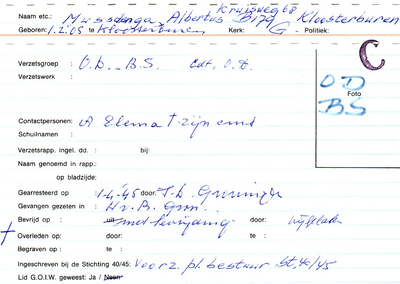 Kruisweg 68
Naam etc.: Mussenga, Albertus Kloosterburen
Geboren: 1.2.05 te Kloosterburen Kerk: G Politiek:
C
Verzetsgroep : O.D. B.S.
Verzetswerk :
OD
Foto
BS
Contactpersonen: A Elema
Schuilnamen :
Verzetsrapp. ingel. dd. : bij:
Naam genoemd in rapp.:
op bladzijde:
Gearresteerd op : 1.4.'45 door: S.D. Groningen
Gevangen gezeten in : H.v.B. Gron.
Bevrijd op : uit door:
Overleden op: door: te :
Begraven op : te :
Ingeschreven bij de Stichting 40/45: Voorz. pl. bestuur St. 40/45
Lid G.O.I.W. geweest: Ja / Neen